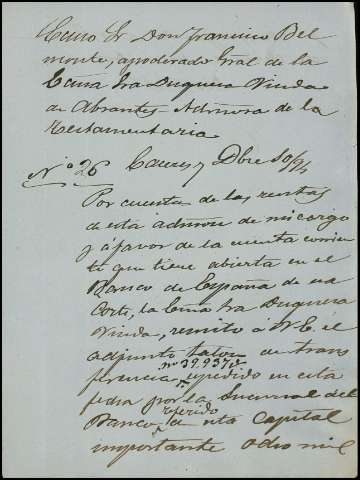 Excmo Sr Don Francisco Bel
monte, apoderado Gral de la
Excma Sra Duquesa Viuda
de Abrantes Admora de la
Testamentaria
Nº 26 Caceres 7 Dbre 1091
Por cuenta de las rentas
de esta admon de mi cargo
y á favor de la cuenta corrien
te que tiene abierta en el
Banco de España de esa
Corte, la Excma Sra Duquesa
Viuda, remito á V.E. el
adjunto talon de trans
nº 39.937
ferencia, expedido en esta
fecha por la Sucursal del
referido
Banco de esta Capital
importante ocho mil